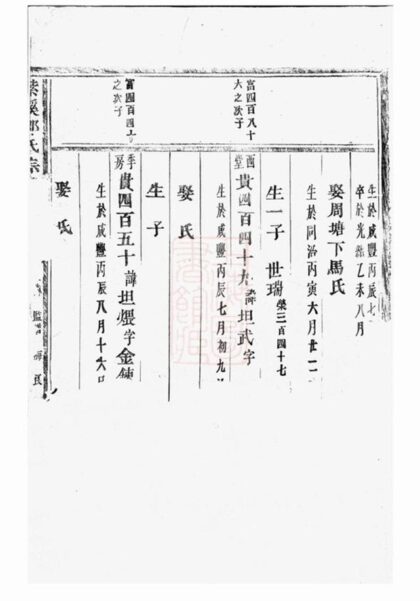 富四百八十
六之次子
富四百四十
之次子
生於咸豐丙辰七
卒於光緒乙未八月
娶周塘下馬氏
生於同治丙寅六月廿一
生一子 世瑞 榮三百四十七
酉堂 貴四百四十九 諱坦武字
生於咸豐丙辰七月初九
娶 氏
生 子
季房 貴四百五十 諱坦煨字金鍊
生於咸豐丙辰八月十六日
娶 氏
紫溪邵氏宗